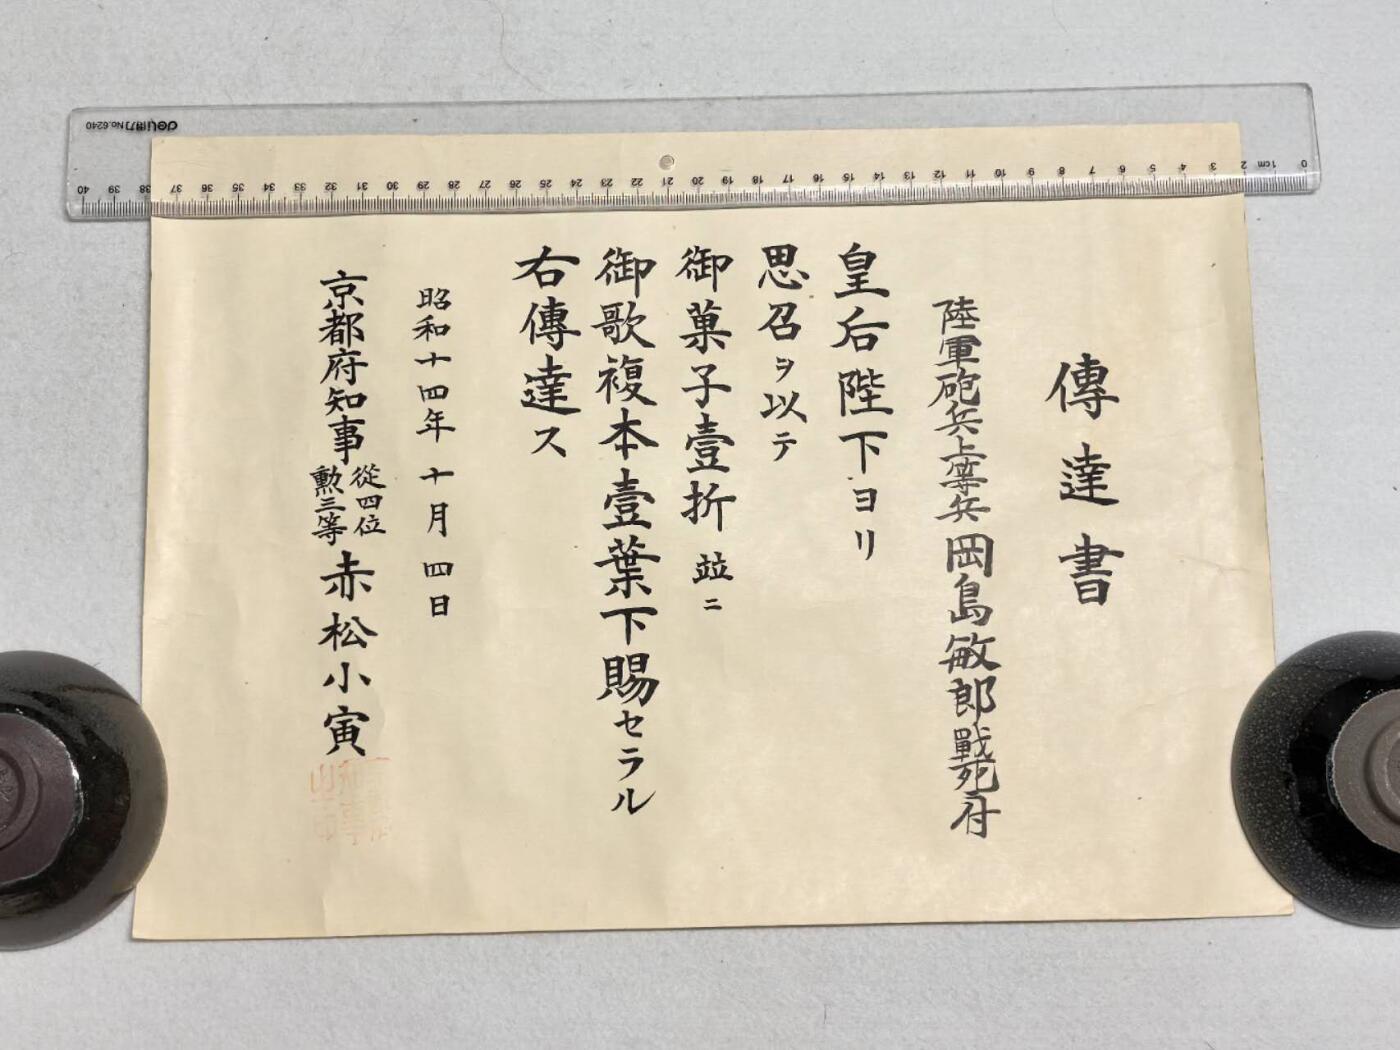 傳達書
陸軍砲兵上等兵 岡島敏郎戰死ニ付
皇后陛下ヨリ
思召ヲ以テ
御菓子壹折 竝ニ
御歌複本壹葉下賜セラル
右傳達ス
昭和十四年十月四日
京都府知事 從四位 勲三等 赤松小寅
deli得力 No.6240
0 1cm 2 3 4 5 6 7 8 9 10 11 12 13 14 15 16 17 18 19 20 21 22 23 24 25 26 27 28 29 30 31 32 33 34 35 36 37 38 39 40